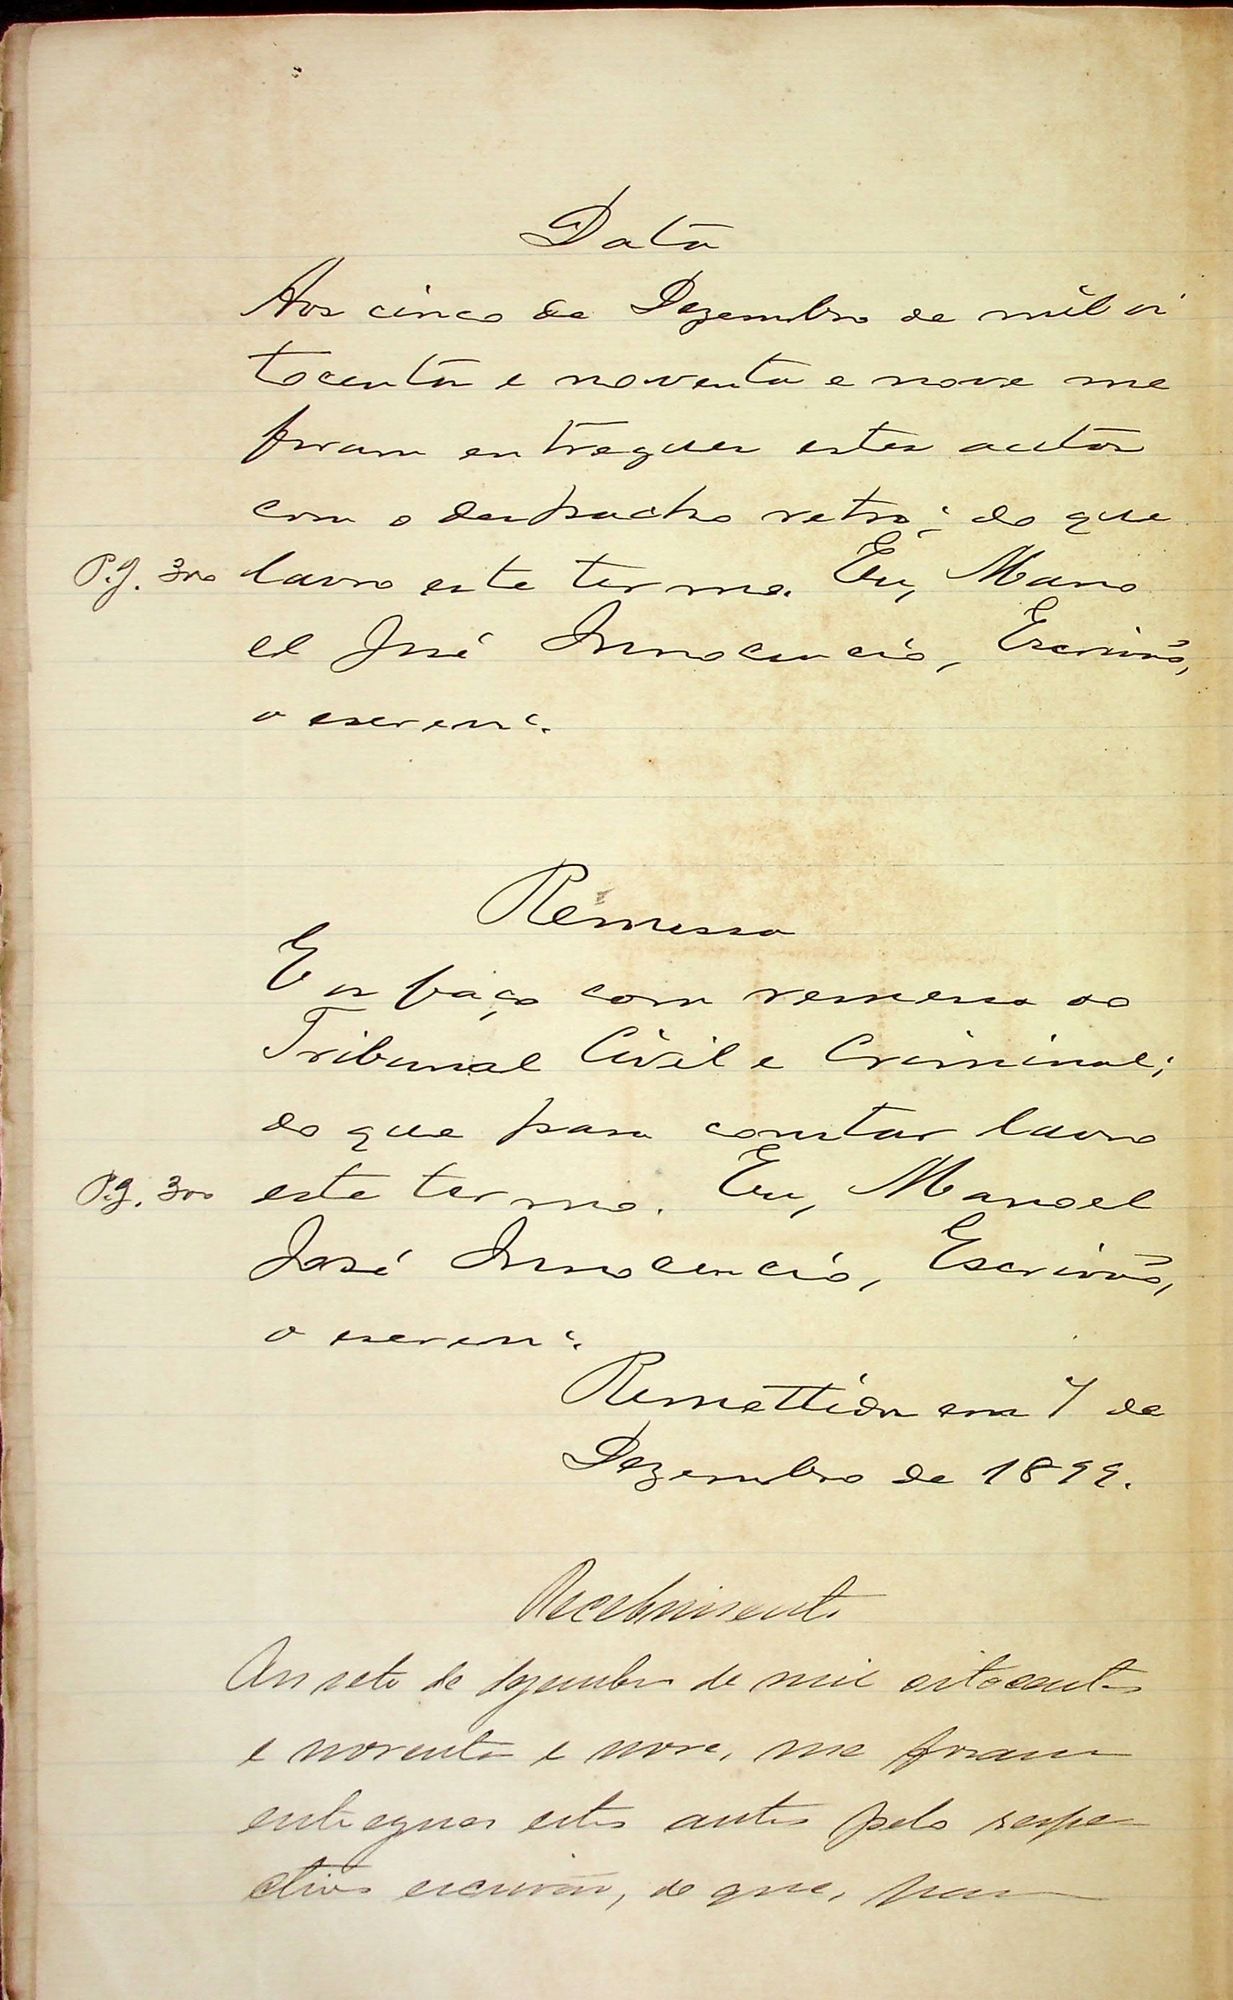 Data
Aos cinco de Dezembro de mil oi
tocentos e noventa e nove me
foram entregues estes autos
com o despacho retro; do que
P.g. 300 lavro este termo. Eu, Mano
el José Innocencio, Escrivão,
o escrevi.
Remessa
E os faço com remessa ao
Tribunal Civil e Criminal;
do que para constar lavro
P.g. 300 este termo. Eu, Manoel
José Innocencio, Escrivão,
o escrevi.
Remettidos em 7 de
Dezembro de 1899.
Recebimento
Aos sete de dezembro de mil oitocentos
e noventa e nove, me foram
entregues estes autos pelo respe
ctivo escrivão, do que, para